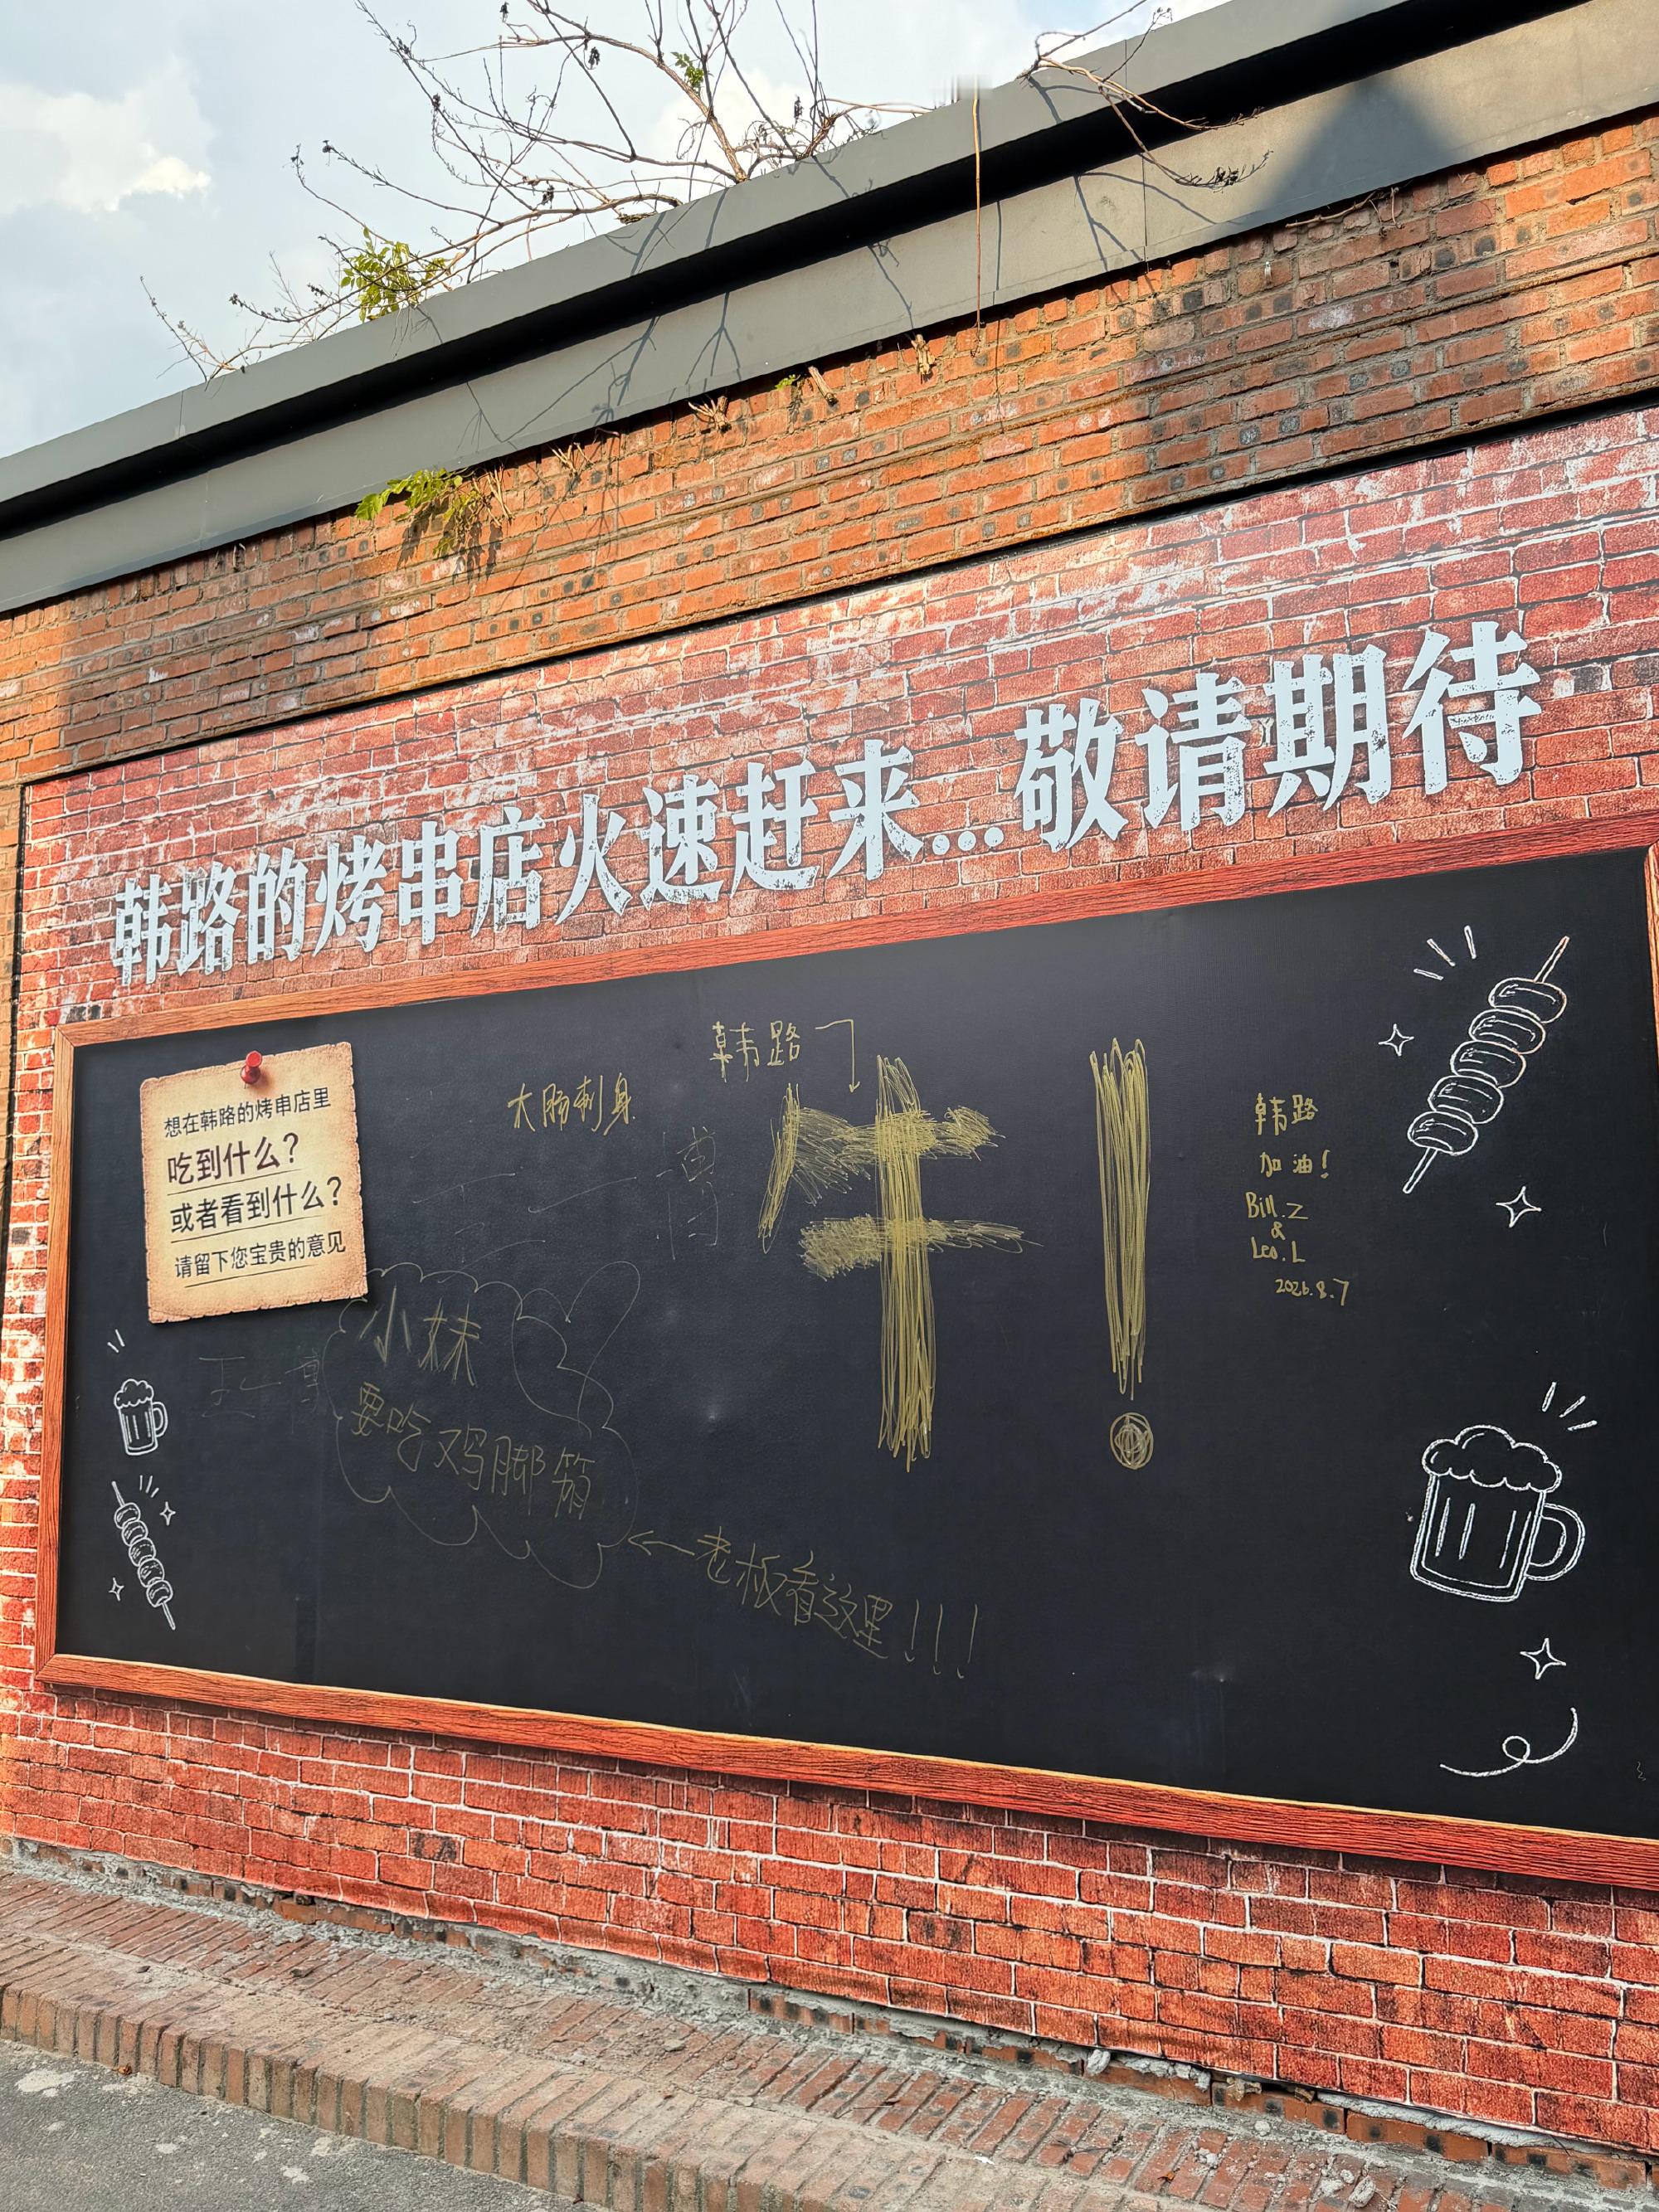 韩路的烤串店火速赶来...敬请期待
想在韩路的烤串店里
吃到什么?
或者看到什么?
请留下您宝贵的意见
大肠刺身
韩路
牛!
韩路
加油!
Bill.Z
&
Leo.L
2026.8.7
小妹
要吃鸡脚筋
←老板看这里!!!